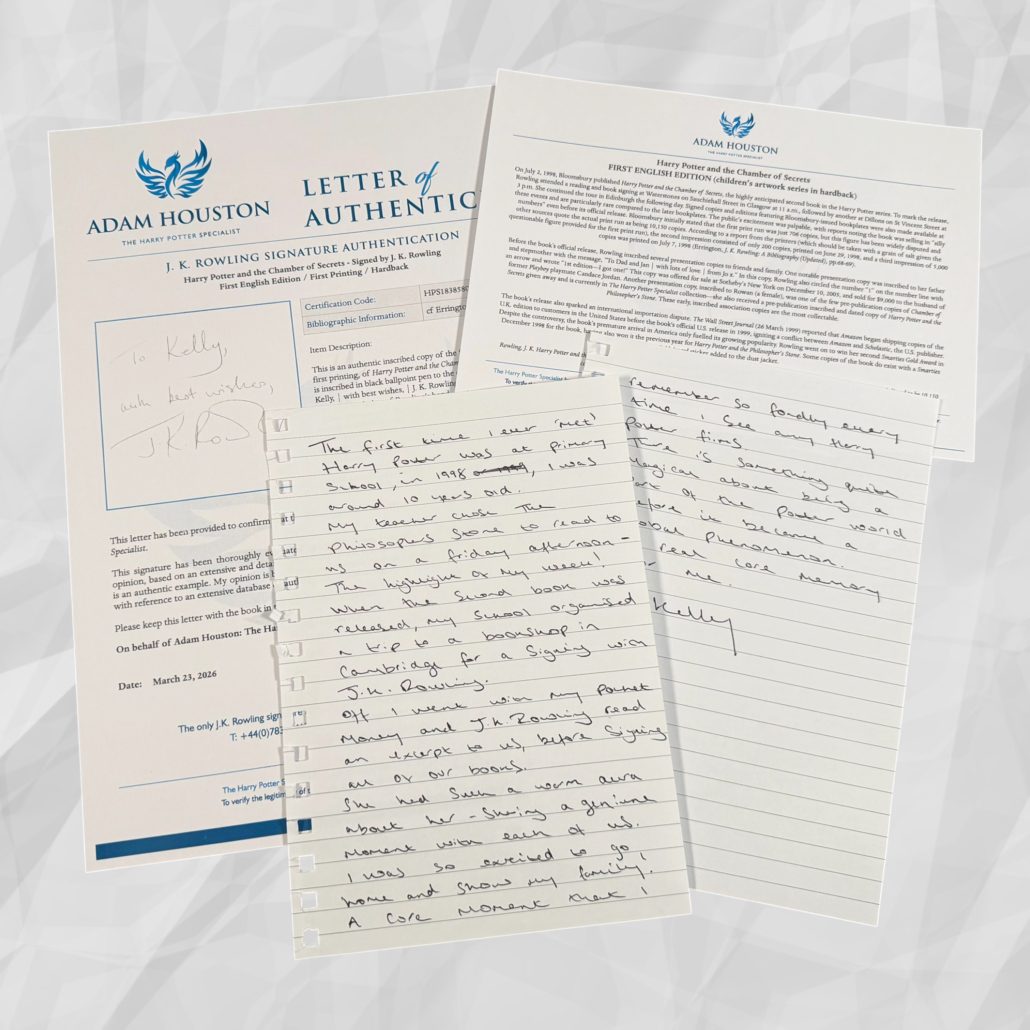 ADAM HOUSTON
THE HARRY POTTER SPECIALIST
LETTER of
AUTHENTIC
J. K. ROWLING SIGNATURE AUTHENTICATION
Harry Potter and the Chamber of Secrets - Signed by J. K. Rowling
First English Edition / First Printing / Hardback
To Kelly,
with best wishes,
J.K. Row
Certification Code:
HPS183858
Bibliographic Information:
cf Erringto
Item Description:
This is an authentic inscribed copy of the
first printing, of Harry Potter and the Chamb
is inscribed in black ballpoint pen to the
Kelly, | with best wishes, | J.K. Rowling
This letter has been provided to confirm
Specialist.
This signature has been thoroughly ev
opinion, based on an extensive and deta
is an authentic example. My opinion is b
with reference to an extensive database
Please keep this letter with the book in
On behalf of Adam Houston: The Ha
Date: March 23, 2026
The only J.K. Rowling sign
T: +44(0)78
The Harry Potter S
To verify the legitim
ADAM HOUSTON
THE HARRY POTTER SPECIALIST
Harry Potter and the Chamber of Secrets
FIRST ENGLISH EDITION (children's artwork series in hardback)
On July 2, 1998, Bloomsbury published Harry Potter and the Chamber of Secrets, the highly anticipated second book in the Harry Potter series. To mark the release,
Rowling attended a reading and book signing at Waterstones on Sauchiehall Street in Glasgow at 11 a.m., followed by another at Dillons on St Vincent Street at
3 p.m. She continued the tour in Edinburgh the following day. Signed copies and editions featuring Bloomsbury-issued bookplates were also made available at
these events and are particularly rare compared to the later bookplates. The public's excitement was palpable, with reports noting the book was selling in "silly
numbers" even before its official release. Bloomsbury initially stated that the first print run was just 706 copies, but this figure has been widely disputed and
other sources quote the actual print run as being 10,150 copies. According to a report from the printers (which should be taken with a grain of salt given the
questionable figure provided for the first print run), the second impression consisted of only 200 copies, printed on June 29, 1998, and a third impression of 5,000
copies was printed on July 7, 1998 (Errington, J. K. Rowling: A Bibliography (Updated), pp.68-69).
Before the book's official release, Rowling inscribed several presentation copies to friends and family. One notable presentation copy was inscribed to her father
and stepmother with the message, "To Dad and Jan | with lots of love | from Jo x." In this copy, Rowling also circled the number "1" on the number line with
an arrow and wrote "1st edition—I got one!" This copy was offered for sale at Sotheby's New York on December 10, 2003, and sold for $9,000 to the husband of
former Playboy playmate Candace Jordan. Another presentation copy, inscribed to Rowan (a female), was one of the few pre-publication copies of Chamber of
Secrets given away and is currently in The Harry Potter Specialist collection—she also received a pre-publication inscribed and dated copy of Harry Potter and the
Philosopher's Stone. These early, inscribed association copies are the most collectable.
The book's release also sparked an international importation dispute. The Wall Street Journal (26 March 1999) reported that Amazon began shipping copies of the
U.K. edition to customers in the United States before the book's official U.S. release in 1999, igniting a conflict between Amazon and Scholastic, the U.S. publisher.
Despite the controversy, the book's premature arrival in America only fuelled its growing popularity. Rowling went on to win her second Smarties Gold Award in
December 1998 for the book, having also won it the previous year for Harry Potter and the Philosopher's Stone. Some copies of the book do exist with a Smarties
sticker added to the dust jacket.
Rowling, J. K. Harry Potter and th
The Harry Potter Specialist
To verify
The first time I ever 'met'
Harry Potter was at primary
School, in 1998, I was
around 10 years old.
My teacher chose The
Philosophers Stone to read to
us on a friday afternoon -
The highlight of my week!
When the second book was
released, my school organised
a trip to a bookshop in
Cambridge for a signing with
J.K. Rowling.
Off I went with my pocket
money and J.K. Rowling read
an excerpt to us, before signing
all of our books.
She had such a warm aura
about her - sharing a geniune
moment with each of us.
I was so excited to go
home and show my family!
A core moment that I
remember so fondly every
time I see any Harry
Potter films
There is something quite
magical about being a
part of the Potter world
before it became a
global phenomenon.
real core memory
for me.
Kelly